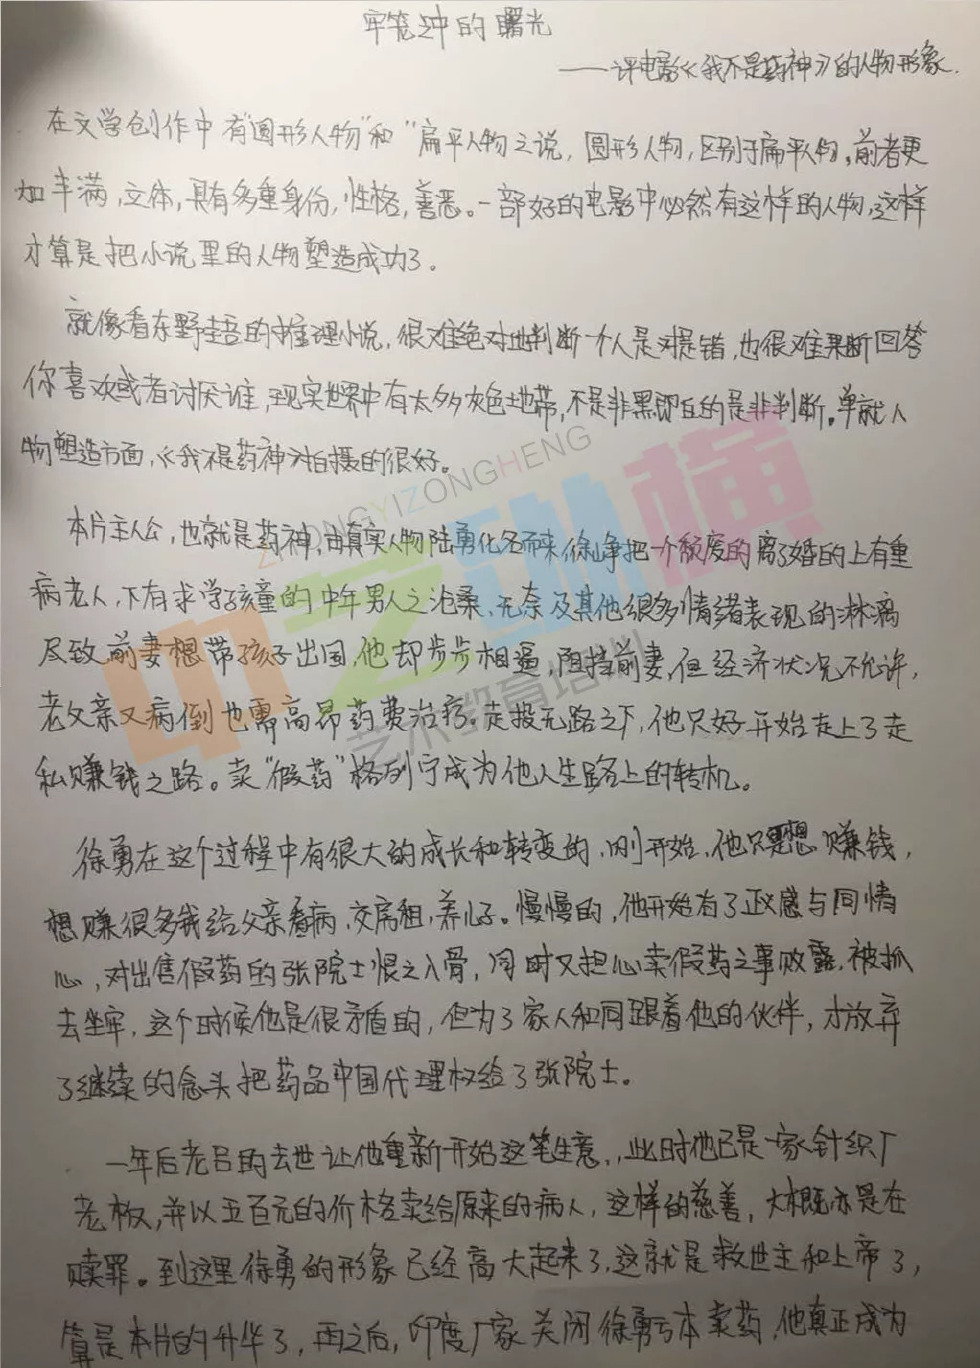 牢笼中的曙光
——评电影《我不是药神》的人物形象.
在文学创作中有"圆形人物"和"扁平人物之说,圆形人物,区别于扁平人物,前者更
加丰满,立体,具有多重身份,性格,善恶。一部好的电影中必然有这样的人物,这样
才算是把小说里的人物塑造成功了.
就像看东野圭吾的推理小说,很难绝对地判断一个人是对是错,也很难果断回答
你喜欢或者讨厌谁,现实世界中有太多灰色地带,不是非黑即白的是非判断。单就人
物塑造方面,《我不是药神》拍摄的很好。
本片主人公,也就是药神,由真实人物陆勇化名而来.徐峥把一个颓废的离了婚的上有重
病老人,下有求学孩童的中年男人之沧桑、无奈及其他很多情绪表现的淋漓
尽致前妻想带孩子出国,他却步步相逼,阻挡前妻,但经济状况不允许,
老父亲又病倒也需高昂药费治疗。走投无路之下,他只好开始走上了走
私赚钱之路。卖"假药"格列宁成为他人生路上的转机。
徐勇在这个过程中有很大的成长和转变的,刚开始,他只要想赚钱,
想赚很多钱给父亲看病,交房租,养儿子。慢慢的,他开始有了正义感与同情
心,对出售假药的张院士恨之入骨,同时又担心卖假药之事败露,被抓
去坐牢,这个时候他是很矛盾的,但为了家人和同跟着他的伙伴,才放弃
了继续的念头把药品中国代理权给了张院士。
一年后老吕的去世让他重新开始这笔生意,,此时他已是一家针织厂
老板,并以五百元的价格卖给原来的病人,这样的慈善,大概亦是在
赎罪。到这里徐勇的形象已经高大起来了,这就是救世主和上帝了,
算是本片的升华了,再之后,印度厂家关闭徐勇亏本卖药,他真正成为
中艺纵横
ZHONGYIZONGHENG
艺术教育培训